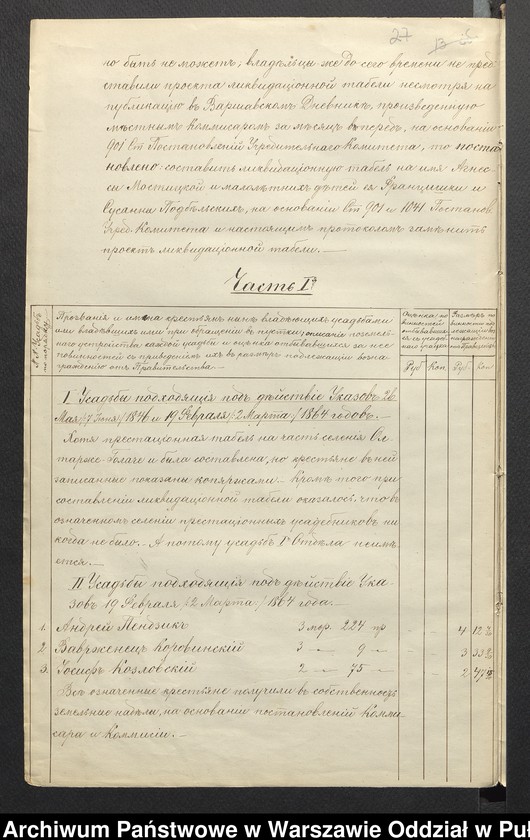 27
но быть не можетъ; владѣльцы же до сего времени не пред
ставили проекта ликвидаціонной табели несмотря на
публикацію въ Варшавскомъ Дневникѣ, произведенную
мѣстнымъ Комисаромъ за мѣсяцъ впередъ, на основаніи
901 Ст Постановленій Учредительнаго Комитета, то поста
новлено: составить ликвидаціонную табель на имя Агнес-
си Мостицкой и малолѣтнихъ дѣтей ея Францишки и
Сусанны Подбѣльскихъ, на основаніи Ст 901 и 1041 Постанов.
Учред. Комитета и настоящимъ протоколомъ замѣнить
проектъ ликвидаціонной табели.
Часть Iя
№№ Усадьбъ по порядку
Прозванія и имена крестьянъ нынѣ владѣющихъ усадьбами
или владѣвшихъ ими при обращеніи въ пустки; описаніе поземель-
наго устройства каждой усадьбы и оценка отбывавшихся за нее
повинностей съ приведеніемъ ихъ въ размѣръ подлежащій возна
гражденію отъ Правительства.
Руб Коп Руб. Коп
I Усадьбы подходящія подъ дѣйствіе Указовъ 26
Мая /7 Іюня/ 1846 и 19 Февраля /2 Марта/ 1864 годовъ.
Хотя престаціонная табель на часть селенія Ол
тарже-Голаче и была составлена, но крестьяне въ ней
записанные показаны копяржами. Кромѣ того при
составленіи ликвидаціонной табели оказалось, что въ
означенномъ селеніи престаціонныхъ усадебниковъ ни
когда не было. А потому усадьбъ Iо Отдѣла неимѣ
ется.
II Усадьбы подходящія подъ дѣйствіе Ука
зовъ 19 Февраля /2 Марта/ 1864 года.
1. Андрей Пендзикъ 3 мор. 224 пр 4 12
2. Вавржене́цъ Коровинскій 3 — 9 — 3 33
3. Іосифъ Козловскій 2 — 75 — 2 47
Всѣ означенные крестьяне получили въ собственность
земельные надѣлы, на основаніи постановленій Комми
сара и Коммисіи.
Archiwum Państwowe w Warszawie Oddział w Puł